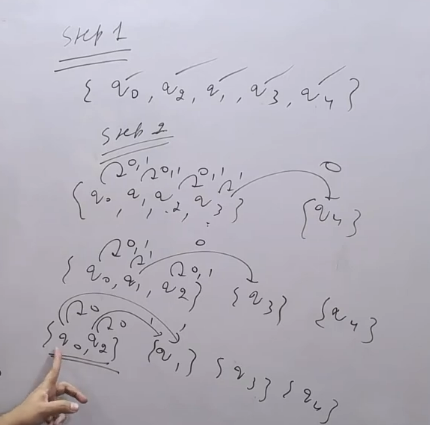 Step 1
{ q0, q2, q1, q3, q4 }
Step 2
0,1 0,1 0,1 1 0
{ q0, q1, q2, q3 } { q4 }
0,1 1 0,1 0
{ q0, q1, q2 } { q3 } { q4 }
0 0 1 1
{ q0, q2 } { q1 } { q3 } { q4 }